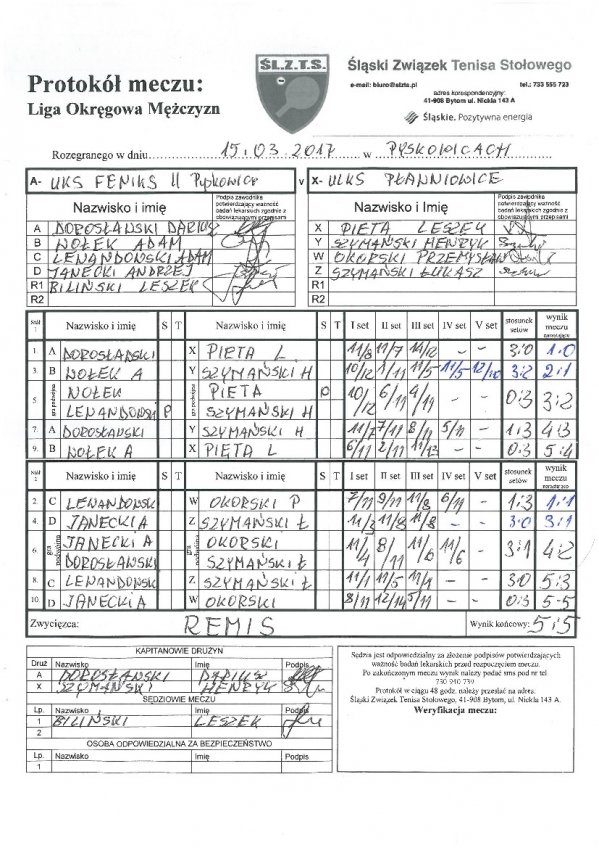 ŚL.Z.T.S.
Śląski Związek Tenisa Stołowego
Protokół meczu:
Liga Okręgowa Mężczyzn
e-mail: biuro@slzts.pl tel.: 733 555 723
adres korespondencyjny:
41-908 Bytom ul. Nickla 143 A
Śląskie. Pozytywna energia
Rozegranego w dniu 15.03.2017 w PYSKOWICACH
A- UKS FENIKS II Pyskowice v X- ULKS PŁAWNIOWICE
Nazwisko i imię Podpis zawodnika potwierdzający ważność badań lekarskich zgodnie z obowiązującymi przepisami Nazwisko i imię Podpis zawodnika potwierdzający ważność badań lekarskich zgodnie z obowiązującymi przepisami
A DOROSŁAWSKI DARIUSZ X PIETA LESZEK
B WOŁEK ADAM Y SZYMAŃSKI HENRYK
C LEWANDOWSKI ADAM W OKORSKI PRZEMYSŁAW
D JANECKI ANDRZEJ Z SZYMAŃSKI ŁUKASZ
R1 BILIŃSKI LESZEK R1
R2 R2
Stół 1 Nazwisko i imię S T Nazwisko i imię S T I set II set III set IV set V set stosunek setów wynik meczu narastająco
1. A DOROSŁAWSKI X PIETA L 11/8 11/7 14/12 - - 3:0 1:0
3. B WOŁEK A Y SZYMAŃSKI H 10/12 1/11 11/5 12/10 3:2 2:1
5. gra podwójna WOŁEK gra podwójna PIETA P 10/12 6/11 9/11 - - 0:3 3:2
LEWANDOWSKI P SZYMAŃSKI H
7. A DOROSŁAWSKI Y SZYMAŃSKI H 7/11 8/11 5/11 - 1:3 4:3
9. B WOŁEK A X PIETA L 6/11 2/11 11/13 - - 0:3 5:4
Stół 1 Nazwisko i imię S T Nazwisko i imię S T I set II set III set IV set V set stosunek setów wynik meczu narastająco
2. C LEWANDOWSK W OKORSKI P 7/11 9/11 11/8 6/11 - 1:3 1:1
4. D JANECKI A Z SZYMAŃSKI Ł 11/3 11/8 11/8 - - 3:0 3:1
6. gra podwójna JANECKI A gra podwójna OKORSKI 11/4 8/11 11/6 11/6 - 3:1 4:2
DOROSŁAWSKI SZYMAŃSKI Ł
8. C LEWANDOWSK Z SZYMAŃSKI Ł 11/5 11/4 - - 3:0 5:3
10. D JANECKI A W OKORSKI 8/11 12/14 5/11 - - 0:3 5-5
Zwycięzca: REMIS Wynik końcowy: 5:5
KAPITANOWIE DRUŻYN
Druż Nazwisko Imię Podpis
A DOROSŁAWSKI DARIUSZ
X SZYMAŃSKI HENRYK
SĘDZIOWIE MECZU
Lp. Nazwisko Imię Podpis
1 BILIŃSKI LESZEK
2
OSOBA ODPOWIEDZIALNA ZA BEZPIECZEŃSTWO
Lp. Nazwisko Imię Podpis
1
Sędzia jest odpowiedzialny za złożenie podpisów potwierdzających
ważność badań lekarskich przed rozpoczęciem meczu.
Po zakończonym meczu wynik należy podać sms pod nr tel.
730 940 739
Protokół w ciągu 48 godz. należy przesłać na adres:
Śląski Związek Tenisa Stołowego, 41-908 Bytom, ul. Nickla 143 A.
Weryfikacja meczu: